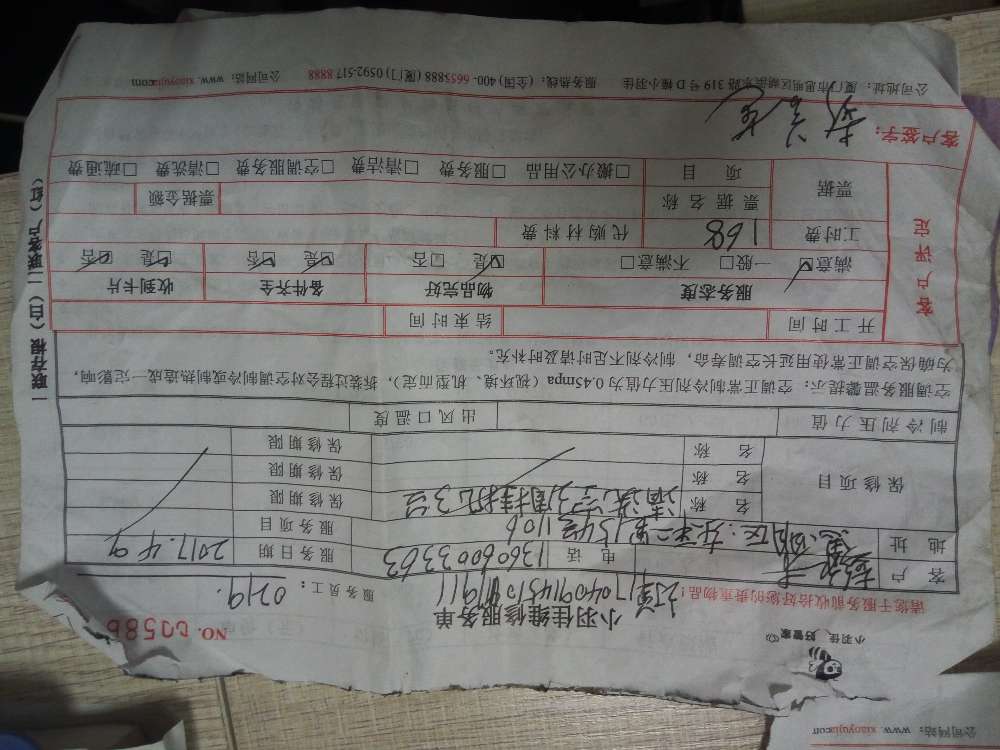 小羽佳、好管家
NO. 00586
小羽佳维修服务单
请您于服务前收拾好您的贵重物品!
服务员工: 0219.
客户
电话 13606003363
服务日期 2017.4.9
地址
1106
服务项目
保修项目
名称 清洗空调挂机3台
保修期限
名称
保修期限
名称
保修期限
制冷剂压力值
出风口温度
空调服务温馨提示: 空调正常制冷剂压力值为0.45mpa (视环境、机型而定), 拆装过程会对空调制冷或制热造成一定影响,
为确保空调正常使用延长空调寿命, 制冷剂不足时请及时补充。
客户评定
开工时间
结束时间
服务态度 物品完好 备件齐全 收到卡片
满意☑ 一般□ 不满意□ ☑是 □否 ☑是 ☑否 ☑是 ☑否
工时费 168 代购材料费
票据 票据名称 票据金额
项目 □搬办公用品 □服务费 □清洁费 □空调服务费 □清洗费 □疏通费
客户签字:
公司地址: 厦门市思明区湖滨东路319号D幢小羽佳 服务热线: (全国) 400-6655888 (厦门) 0592-517 8888 公司网站: www. xiaoyujia.com
一联存根 (白) 二联客户 (红)
公司网站: www. xiaoyujia.com